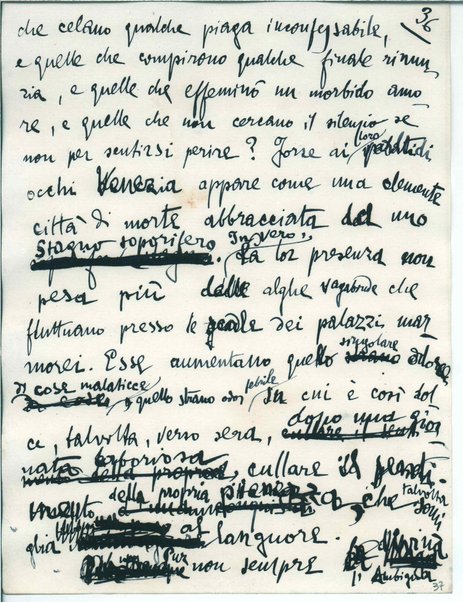 36
che celano qualche piaga inconfessabile,
e quelle che compirono qualche finale rinun
zia, e quelle che effeminò un morbido amo
re, e quelle che non cercano il silenzio se
non per sentirsi perire? Forse ai loro pallidi
occhi Venezia appare come una clemente
città di morte abbracciata da uno
stagno soporifero. In vero, la lor presenza non
pesa più delle alghe vagabonde che
fluttuano presso le scale dei palazzi mar
morei. Esse aumentano quel singolare odore
di cose malaticce, quello strano odor febrile in cui è così dol
ce, talvolta, verso sera, dopo una gior
nata laboriosa, cullare il senti-
mento della propria pienezza, che talvolta somi
glia al languore.
Pur non sempre
l'Ambigua
37